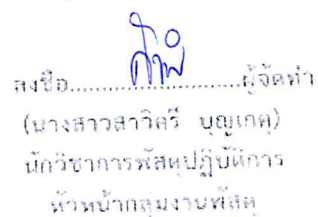 ลงชื่อ....................ผู้จัดทำ
(นางสาวสาวิตรี บุญเกตุ)
นักวิชาการพัสดุปฏิบัติการ
หัวหน้ากลุ่มงานพัสดุ